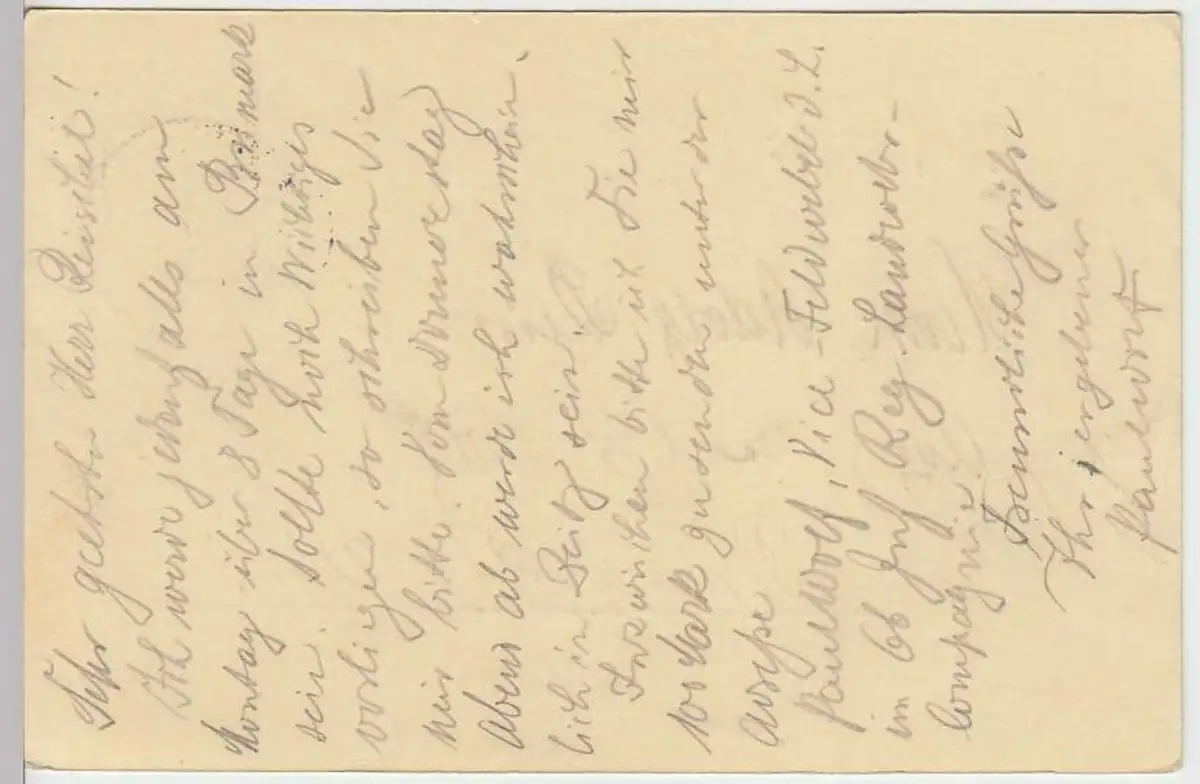 Sehr geehrter Herr Reinstiel!
Ich werde jedenfalls am
Montag über 8 Tage in Bismark
sein. Sollte noch Wichtiges
vorliegen, so schreiben Sie
mir bitte. Von Donnerstag
Abend ab werde ich wahrschein-
lich in Beritz sein.
Inzwischen bitte ich Sie mir
100 Mark zusenden unter der
Adresse
Paul Wolf, Vice-Feldwebel d. L.
im 66 Inf Reg. Landwehr-
Compagnie.
Freundliche Grüße
Ihr ergebener
Paul Wolf